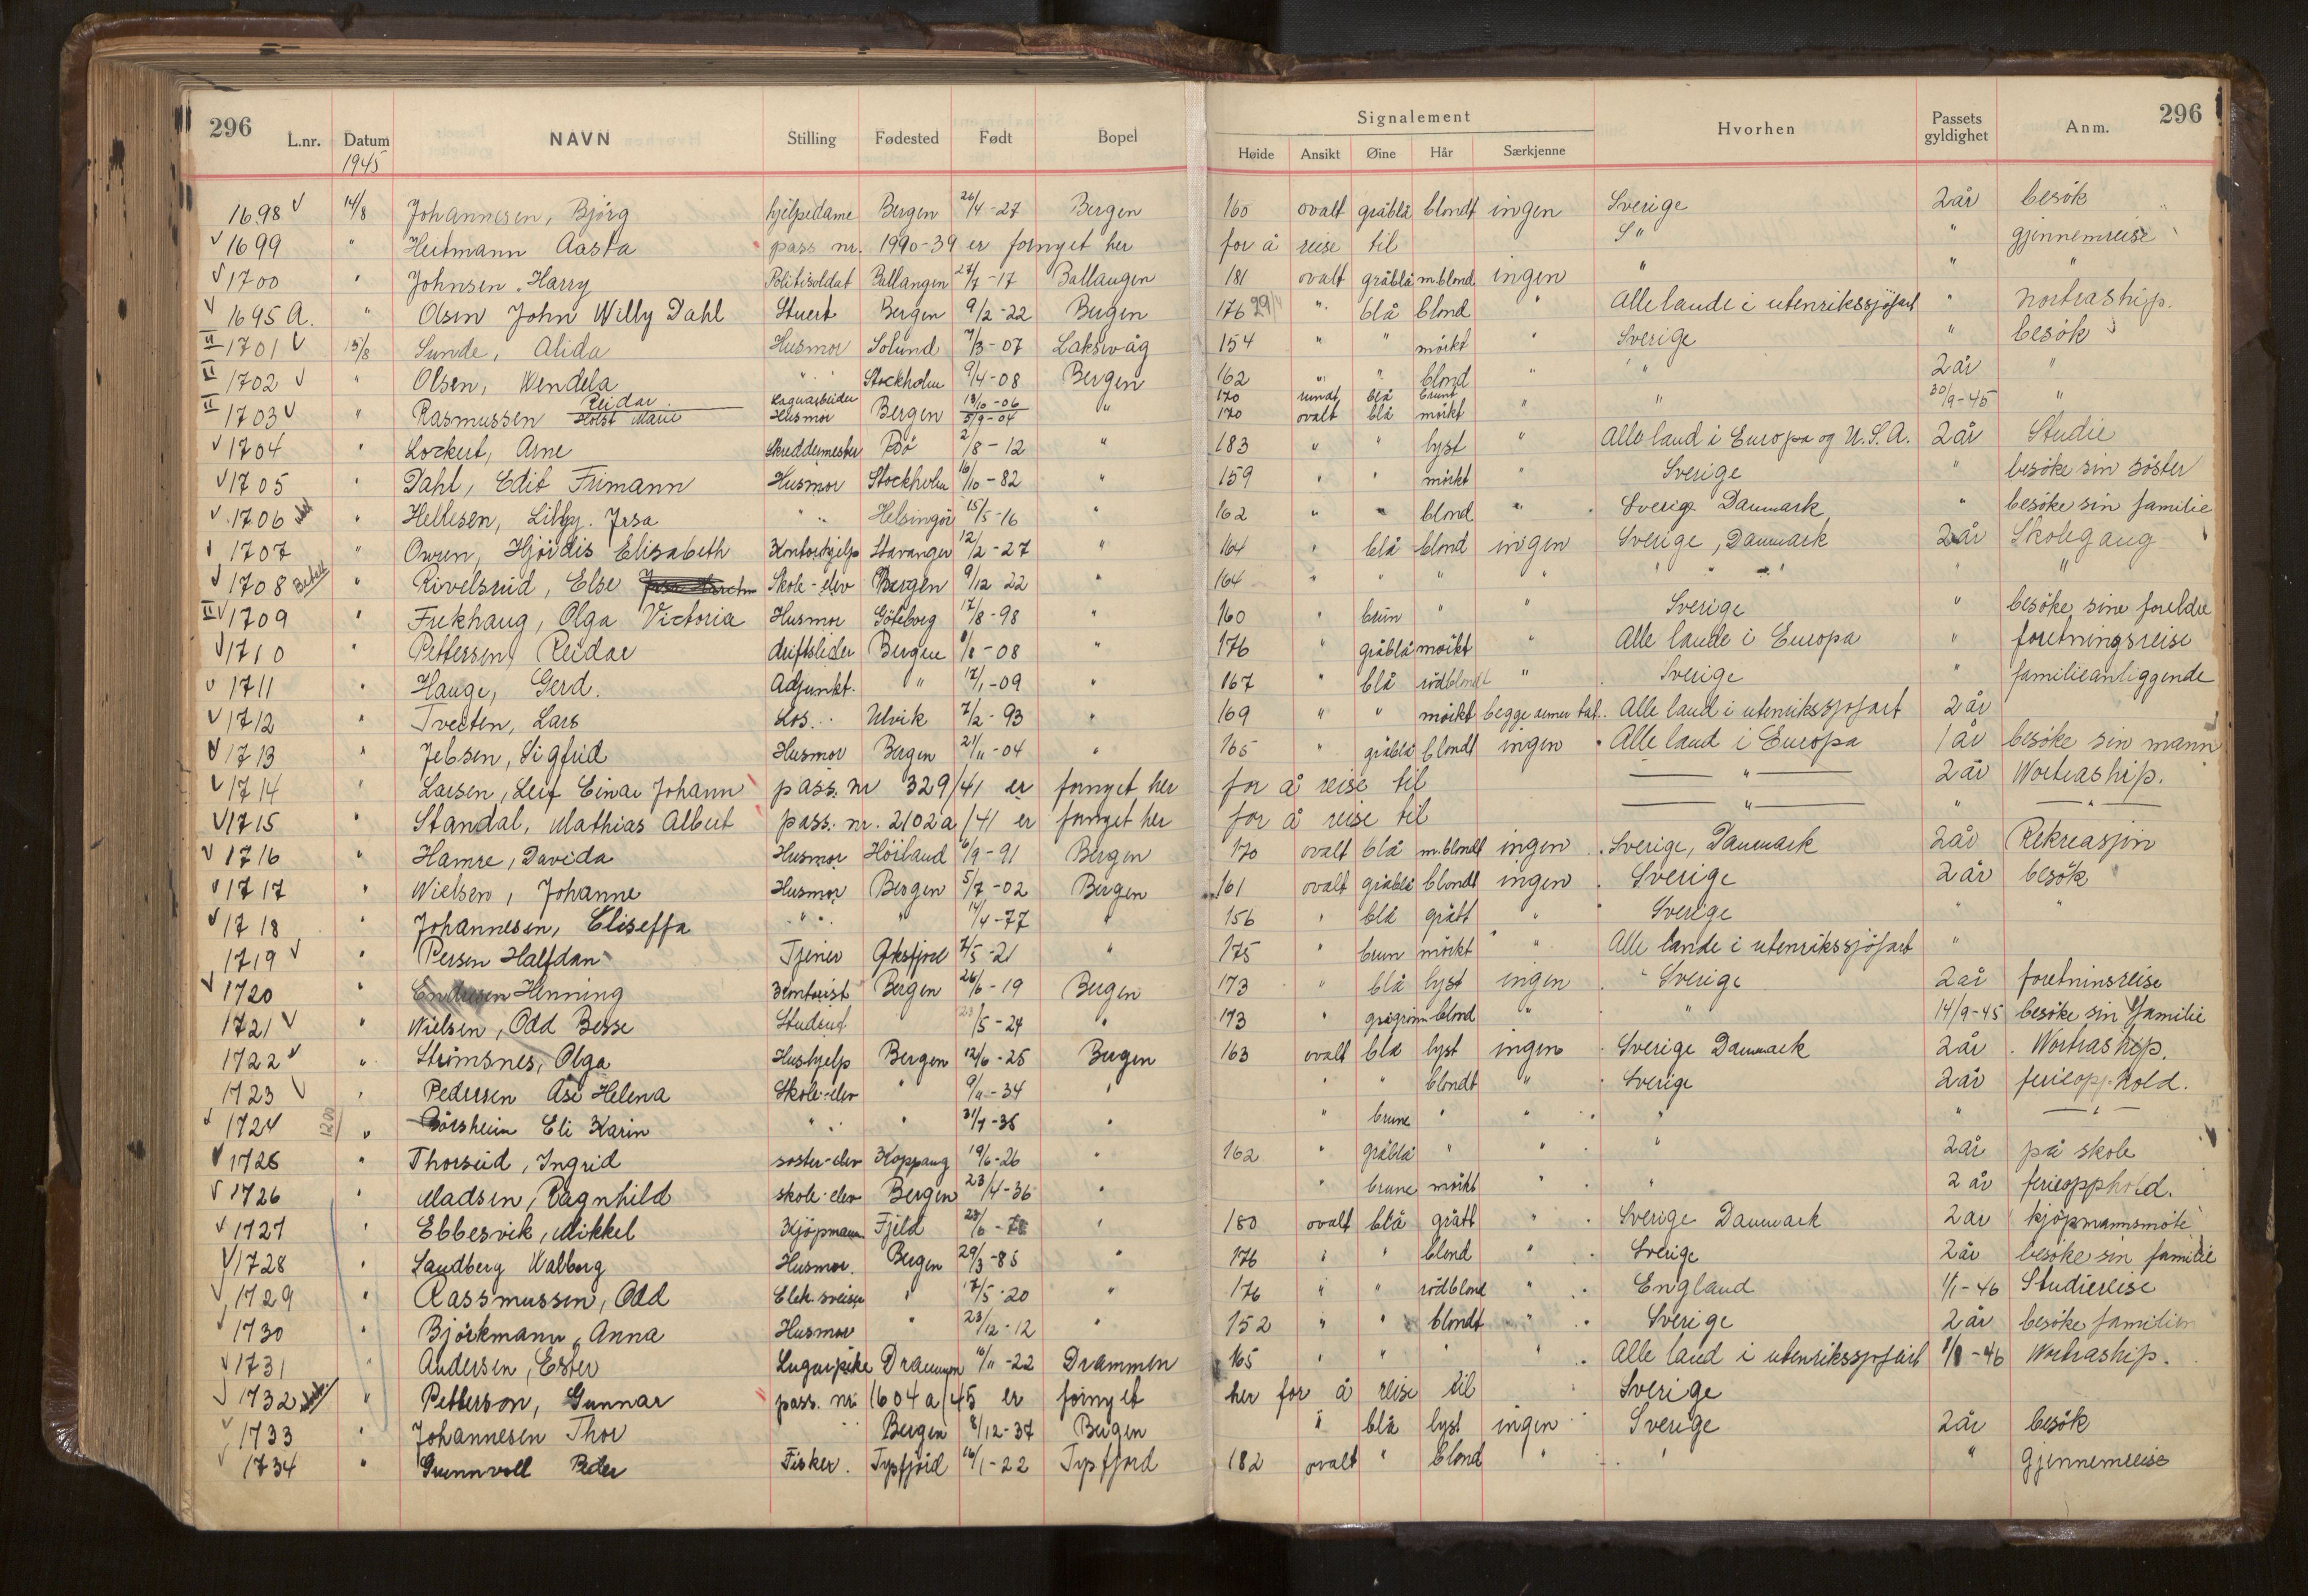 296 L.nr. Datum NAVN Stilling Fødested Født Bopel Signalement Hvorhen Passets gyldighet Anm. 296
1945 Høide Ansikt Øine Hår Særkjenne
1698 14/8 Johannesen, Bjørg hjelpedame Bergen 26/4-27 Bergen 160 ovalt gråblå blondt ingen Sverige 2 år besök
1699 " Heitmann Aasta pass nr. 1990-39 er fornyet her for å reise til S " " gjennemreise
1700 " Johnsen, Harry Politisoldat Ballangen 27/7-17 Ballangen 181 ovalt gråblå m.blond ingen " " "
1695 A. " Olsen John Willy Dahl Stuert Bergen 9/2-22 Bergen 176 " blå blond " Alle lande i utenrikssjöfart " Nortraship.
1701 15/8 Sunde, Alida Husmor Solund 7/3-07 Laksevåg 154 " " mörkt " Sverige " besök
1702 " Olsen, Wendela " Stockholm 9/4-08 Bergen 162 " " blond " " 2 år "
1703 " Rasmussen Reidar Holst Marie Lagerarbeider Husmor Bergen 13/10-06 5/9-04 " 170 rundt blå brunt 170 ovalt blå mörkt " " 30/9-45 "
1704 " Lockert, Arne Skreddermester Bö 2/8-12 " 183 " " lyst " Alle land i Europa og U.S.A. 2 år Studie
1705 " Dahl, Edit Frimann Husmor Stockholm 16/10-82 " 159 " " mörkt " Sverige " besöke sin söster
1706 " Hellesen, Lilly. " Helsingör 15/5-16 " 162 " " blond " Sverige Danmark " besöke sin familie
1707 " Owren, Hjördis Elisabeth Kontorhjelp Stavanger 12/2-27 " 164 " blå blond ingen Sverige, Danmark 2 år Skolegang
1708 " Rivelsrud, Else Skole-elev Bergen 9/12-22 " 164 " " " " " " " "
1709 " Frekhaug, Olga Victoria Husmor Göteborg 17/8-98 " 160 " brun " " Sverige " besöke sine foreldre
1710 " Pettersen, Reidar driftsleder Bergen 8/8-08 " 176 " gråblå mörkt " Alle lande i Europa " foretningsreise
1711 " Hauge, Gerd. Adjunkt. " 12/1-09 " 167 " blå rödblondt " Sverige " familieanliggende
1712 " Tveiten, Lars Los. Ulvik 7/2-93 " 169 " " mörkt begge armer tat. Alle land i utenrikssjöfart 2 år
1713 " Jebsen, Sigfrid Husmor Bergen 21/11-04 " 165 " gråblå blondt ingen Alle land i Europa 1 år besöke sin mann
1714 " Larsen, Leif Einar Johann pass. nr 329/41 er fornyet her for å reise til " 2 år Nortraship.
1715 " Standal, Mathias Albert pass. nr. 2102a/41 er fornyet her for å reise til " " "
1716 " Hamre, Davida Husmor Höiland 6/9-91 Bergen 170 ovalt blå m.blondt ingen Sverige, Danmark 2 år Rekreasjon
1717 " Nielsen, Johanne Husmor Bergen 5/7-02 Bergen 161 ovalt gråblå blondt ingen Sverige 2 år besök
1718 " Johannesen, Eliseffa " " 14/4-77 " 156 " blå grått " Sverige " "
1719 " Persen Halfdan Tjener Öksfjord 7/5-21 " 175 " brun mörkt " Alle lande i utenrikssjöfart "
1720 " Henning Kontorist Bergen 26/6-19 Bergen 173 " blå lyst ingen Sverige 2 år foretninsreise
1721 " Nielsen, Odd Besse Student 23/5-24 " 173 " grågrönn blond " " 14/9-45 besöke sin familie
1722 " Strömsnes, Olga Hushjelp Bergen 12/6-25 Bergen 163 ovalt blå lyst ingen Sverige Danmark 2 år Nortraship.
1723 " Pedersen Åse Helena Skole-elev " 9/11-34 " " " blondt " Sverige 2 år ferieopphold.
1724 1200 " Börsheim Eli Karin " " 31/7-36 " " brune " " " " "
1725 " Thorseid, Ingrid söster-elev Koppang 19/6-26 " 162 " gråblå " " " 2 år på skole
1726 " Madsen, Ragnhild skole-elev Bergen 23/4-36 " " brune mörkt " " 2 år ferieopphold.
1727 " Ebbesvik, Mikkel Kjöpmann Fjeld 23/6- " 180 ovalt blå grått " Sverige Danmark 2 år kjöpmannsmöte
1728 " Sandberg Walborg Husmor. Bergen 29/3-85 " 176 " " blond " Sverige 2 år besöke sin familie
1729 " Rassmussen, Odd Elek. sveiser " 17/5-20 " 176 " " rödblond " England 1/1-46 Studiereise
1730 " Björkmann, Anna Husmor " 23/12-12 " 152 " " blondt " Sverige 2 år besöke familien
1731 " Andersen, Ester Lugarpike Drammen 16/11-22 Drammen 165 " " " " Alle land i utenrikssjöfart 1/8-46 Nortraship.
1732 " Petterson, Gunnar pass. nr. 1604a/45 er fornyet her for å reise til Sverige
1733 " Johannesen Thor Bergen 8/12-37 Bergen " blå lyst ingen Sverige 2 år besök
1734 " Gunnvoll Peder Fisker. Tyfjord 16/1-22 Tyfjord 182 ovalt " blond " " " gjennemreise